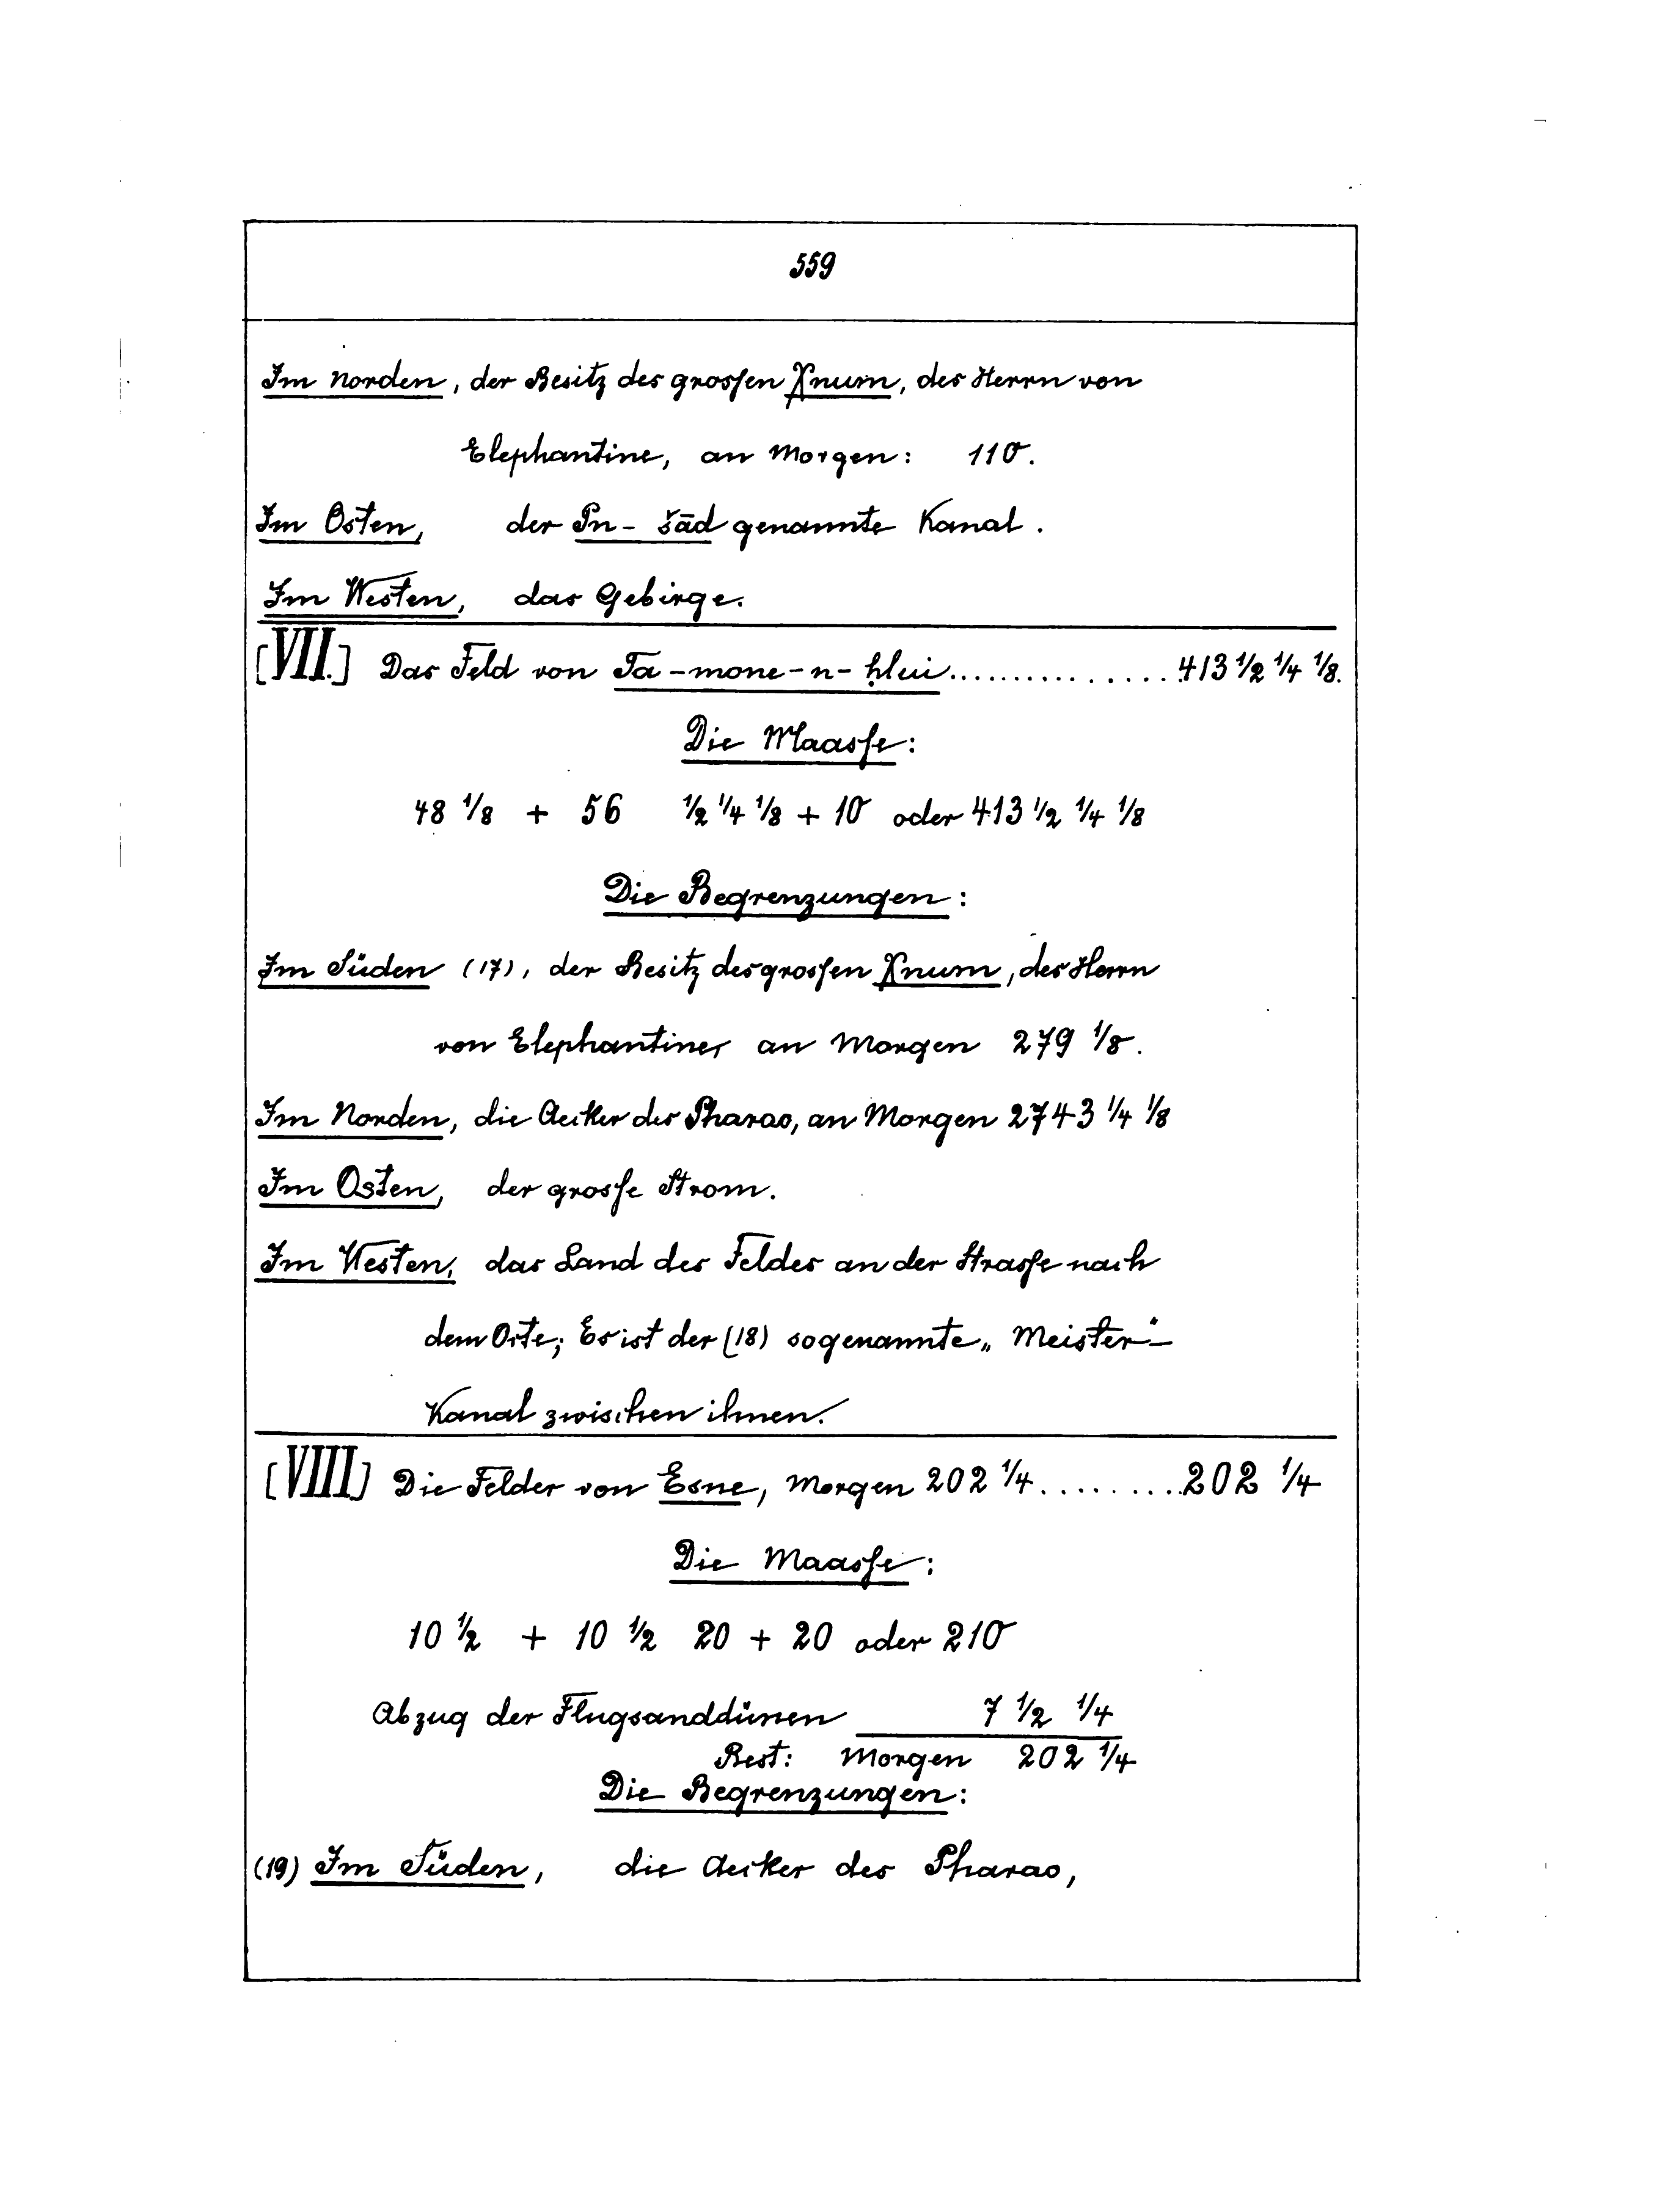 559
Im Norden, der Besitz des grossen Xnum, des Herrn von
Elephantine, an Morgen: 110.
Im Osten, der Pn-šād genannte Kanal.
Im Westen, das Gebirge.
[VII.] Das Feld von Ta-mone-n-ḥlui................413 1/2 1/4 1/8.
Die Maasse:
48 1/8 + 56 1/2 1/4 1/8 + 10 oder 413 1/2 1/4 1/8
Die Begrenzungen:
Im Süden (17), der Besitz des grossen Xnum, des Herrn
von Elephantine, an Morgen 279 1/8.
Im Norden, die Aecker des Pharao, an Morgen 2743 1/4 1/8
Im Osten, der grosse Strom.
Im Westen, das Land des Feldes an der Strasse nach
dem Orte; Es ist der (18) sogenannte „Meister"-
Kanal zwischen ihnen.
[VIII] Die Felder von Esne, Morgen 202 1/4.........202 1/4
Die Maasse:
10 1/2 + 10 1/2 20 + 20 oder 210
Abzug der Flugsanddünen 7 1/2 1/4
Rest: Morgen 202 1/4
Die Begrenzungen:
(19) Im Süden, die Aecker des Pharao,